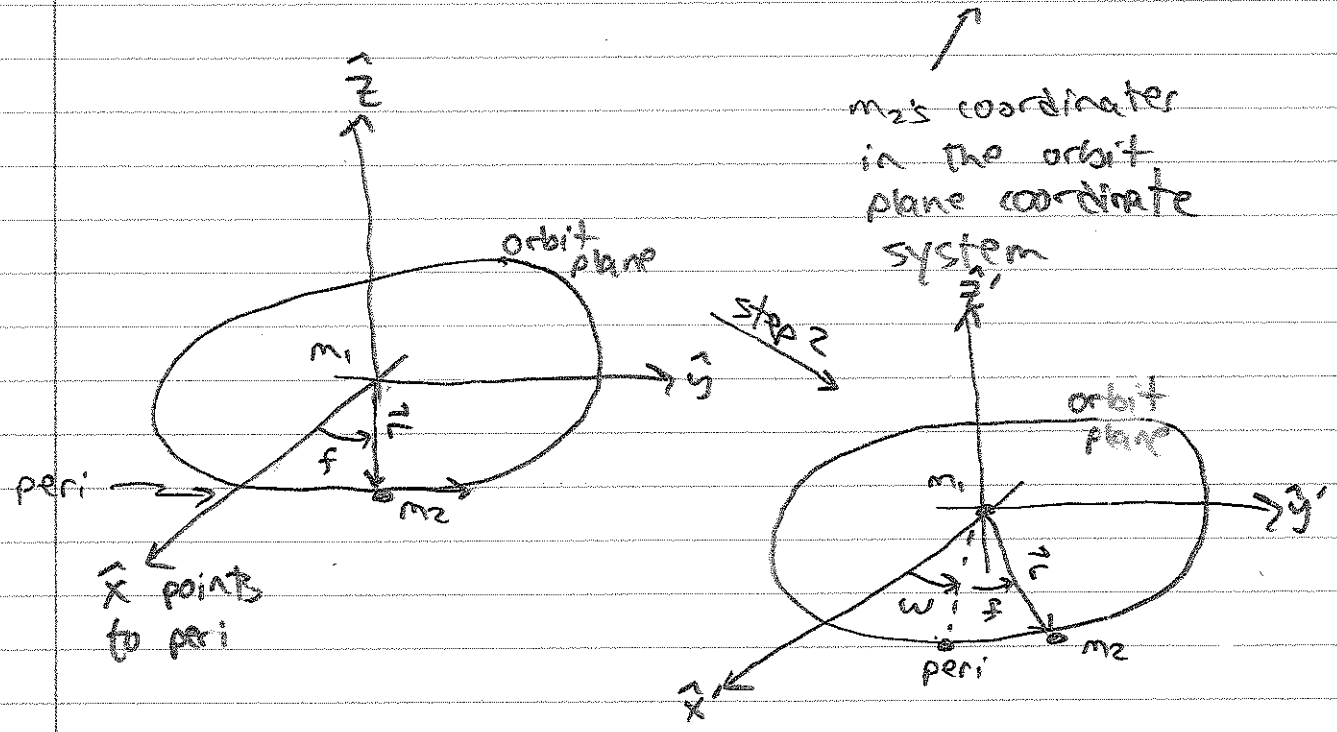 m₂'s coordinates
in the orbit
plane coordinate
system
ẑ
orbit
plane
m₁
ŷ
r⃗
f
peri
m₂
x̂ points
to peri
step 2
ẑ'
orbit
plane
m₁
ŷ'
r⃗
ω f
m₂
peri
x̂'